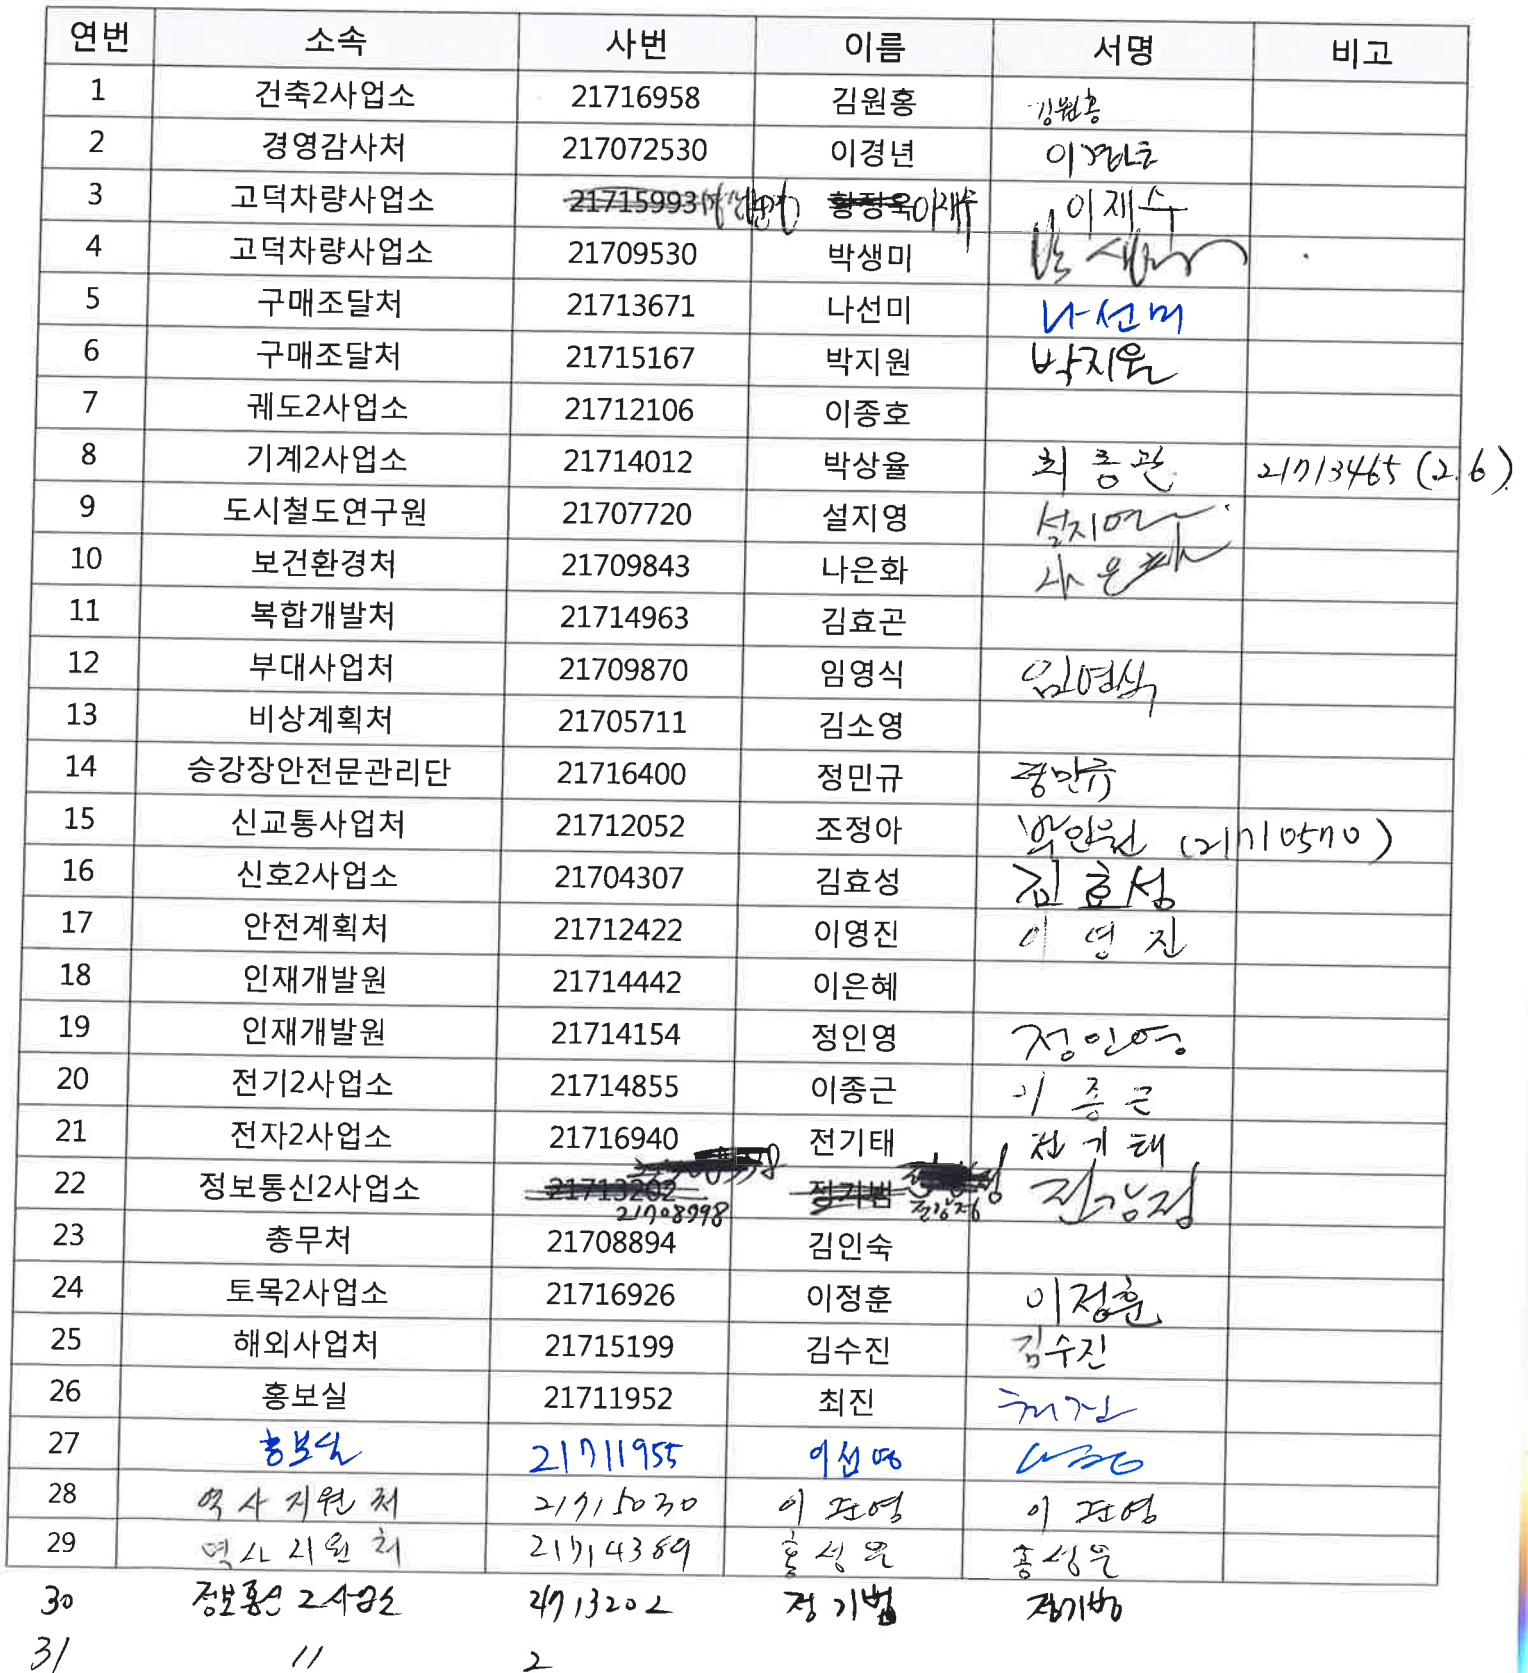 연번 소속 사번 이름 서명 비고
1 건축2사업소 21716958 김원홍 김원홍
2 경영감사처 217072530 이경년
3 고덕차량사업소 21715993 황정욱 이재수 이재수
4 고덕차량사업소 21709530 박생미
5 구매조달처 21713671 나선미 나선미
6 구매조달처 21715167 박지원 박지원
7 궤도2사업소 21712106 이종호
8 기계2사업소 21714012 박상율 최종관 21713465 (2.6)
9 도시철도연구원 21707720 설지영 설지영
10 보건환경처 21709843 나은화 나은화
11 복합개발처 21714963 김효곤
12 부대사업처 21709870 임영식 임영식
13 비상계획처 21705711 김소영
14 승강장안전문관리단 21716400 정민규 정민규
15 신교통사업처 21712052 조정아 (21710570)
16 신호2사업소 21704307 김효성 김효성
17 안전계획처 21712422 이영진 이영진
18 인재개발원 21714442 이은혜
19 인재개발원 21714154 정인영 정인영
20 전기2사업소 21714855 이종근 이종근
21 전자2사업소 21716940 전기태 전기태
22 정보통신2사업소 21713202 정기범
21708998
23 총무처 21708894 김인숙
24 토목2사업소 21716926 이정훈 이정훈
25 해외사업처 21715199 김수진 김수진
26 홍보실 21711952 최진 최진
27 홍보실 21711955
28 역사지원처 21715030
29 역사지원처 21714389 홍성은 홍성은
30 정보통신2사업소 21713202 정기범 정기범
31 〃 2